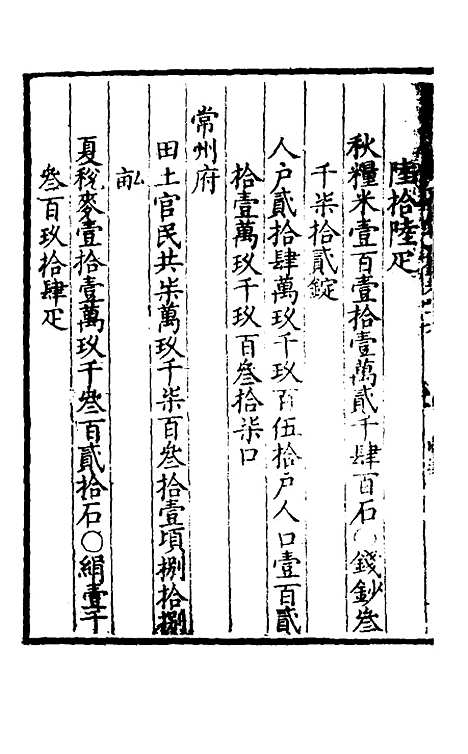 陸拾陸疋
秋糧米壹百壹拾壹萬貳千肆百石○錢鈔叄
千柒拾貳錠
人户貳拾肆萬玖千玖百伍拾户人口壹百貳
拾壹萬玖千玖百叄拾柒口
常州府
田土官民共柒萬玖千柒百叄拾壹頃捌拾捌
畝
夏稅麥壹拾壹萬玖千叄百貳拾石○絹壹千
叄百玖拾肆疋